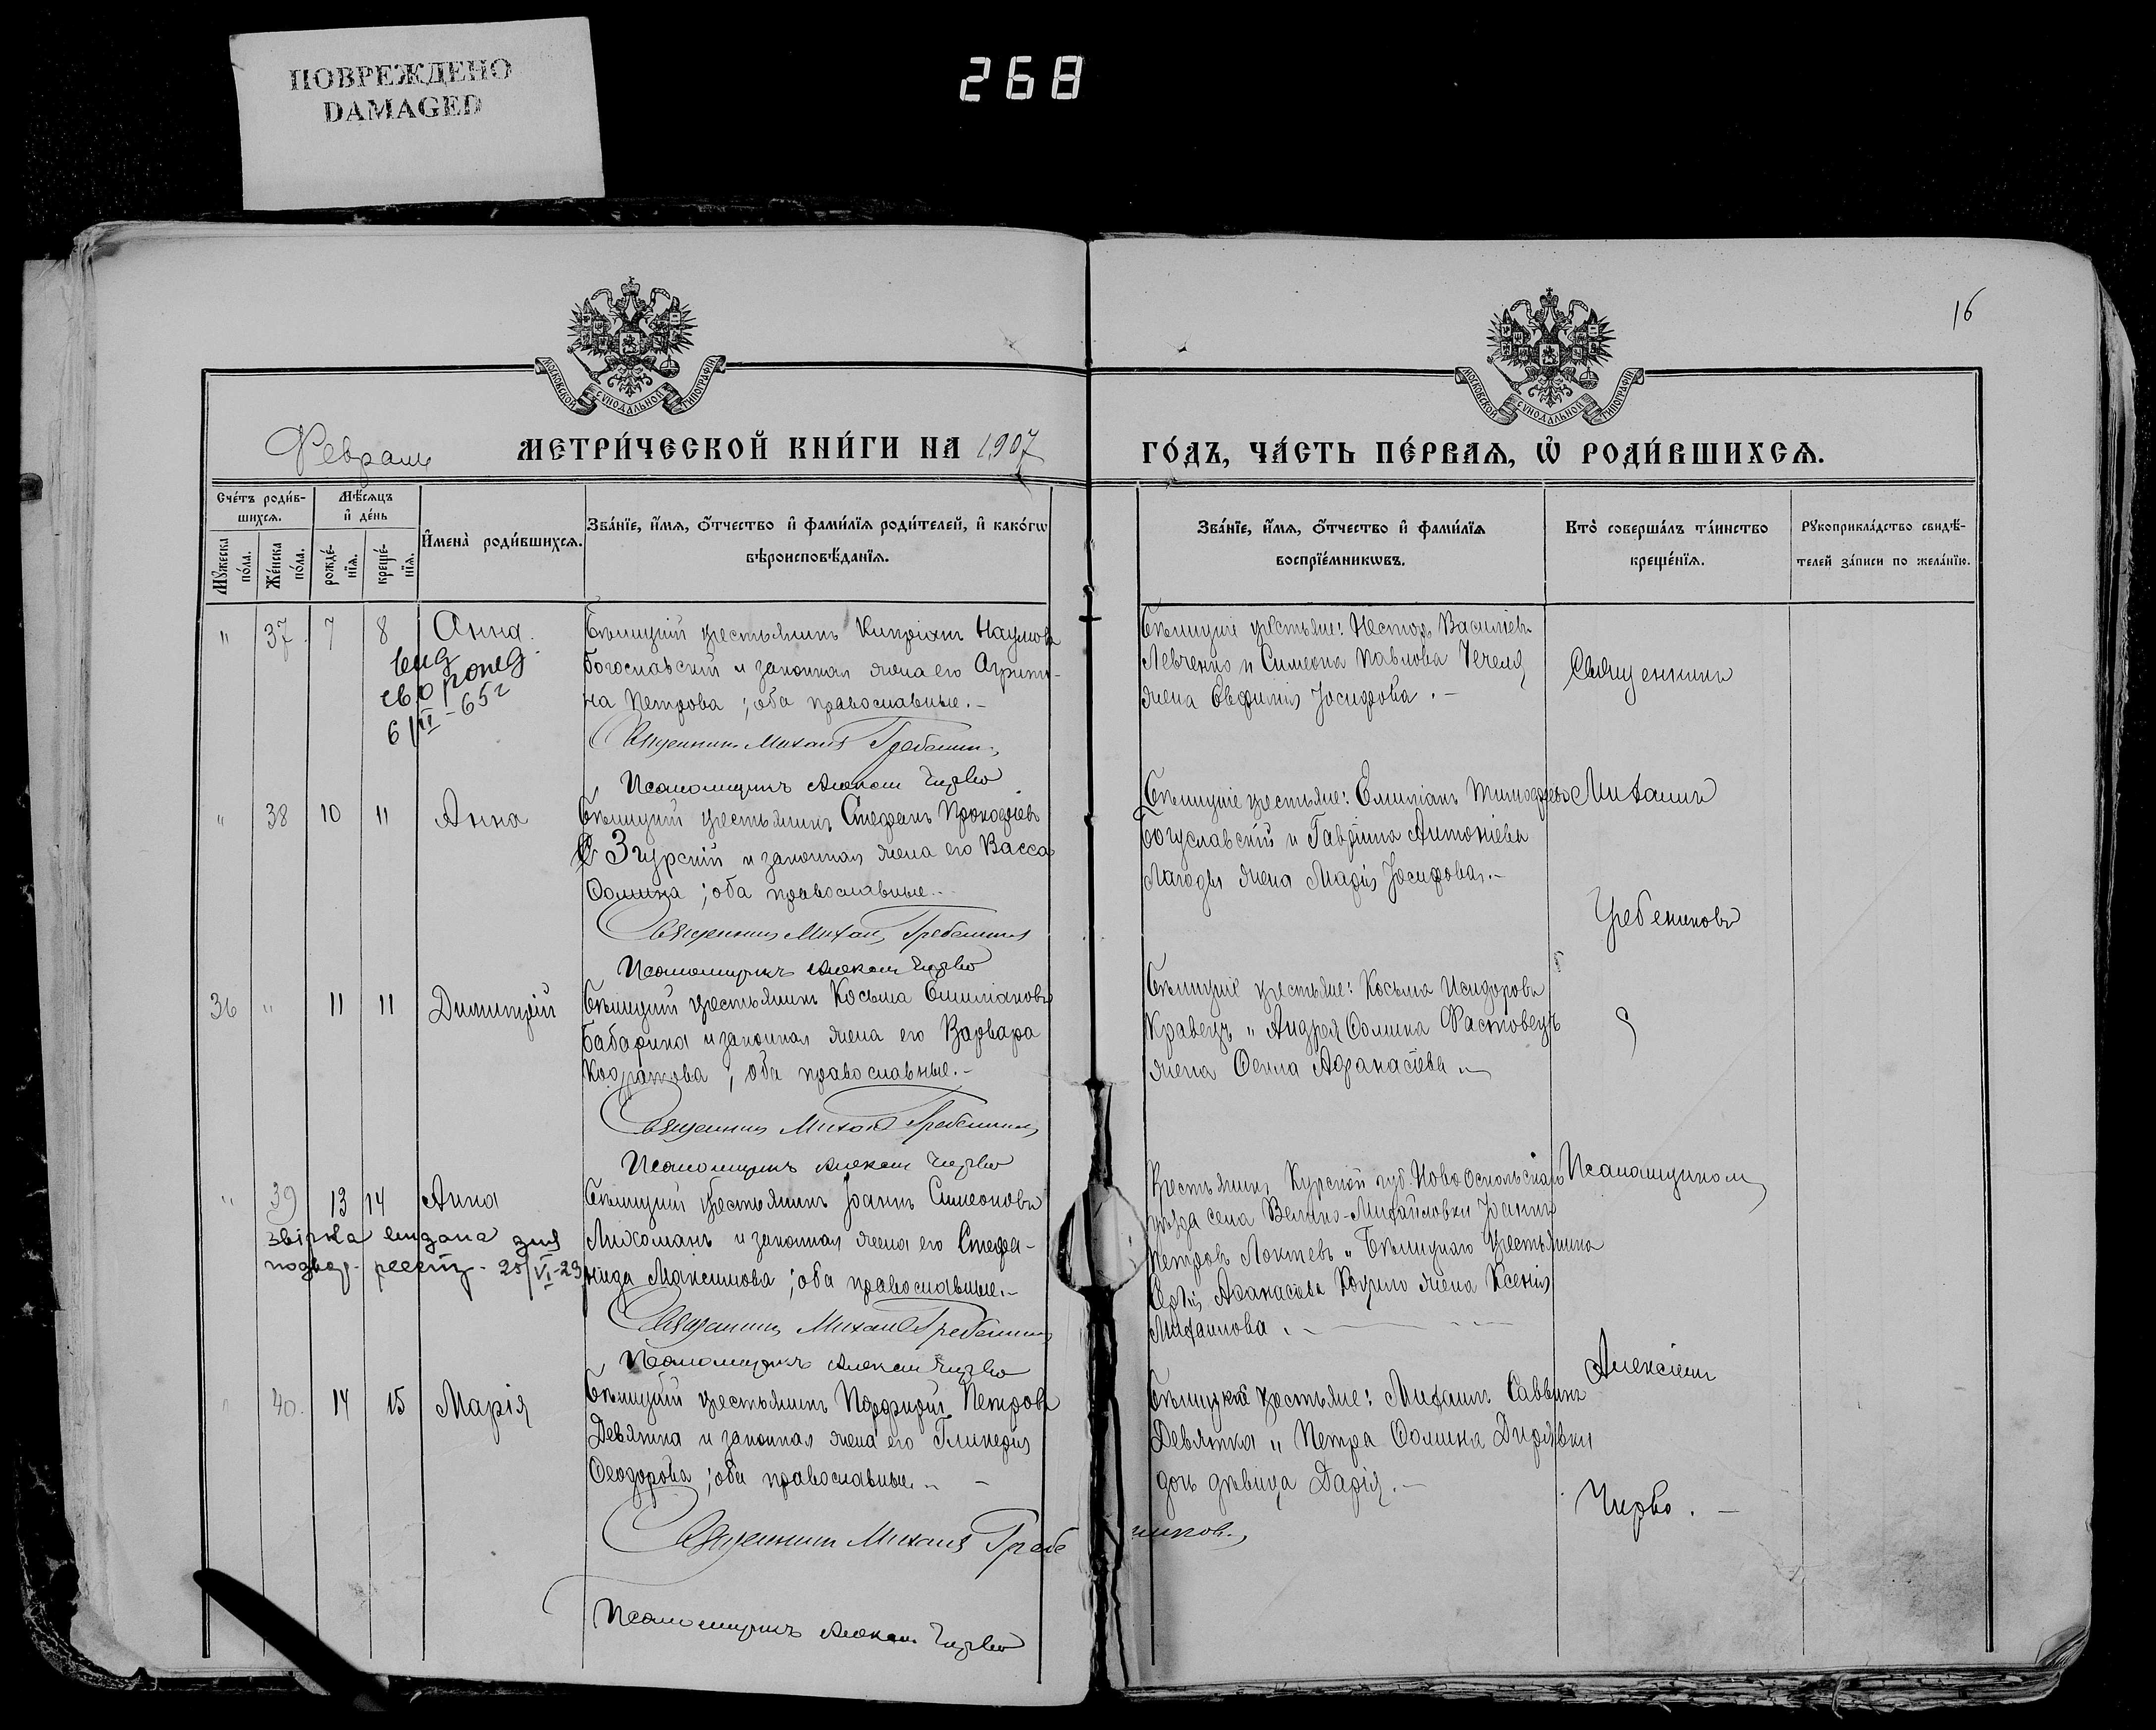 ПОВРЕЖДЕНО
DAMAGED
268
16
МОСКОВСКОЙ СУНОДАЛЬНОЙ ТИПОГРАФІИ
МОСКОВСКОЙ СУНОДАЛЬНОЙ ТИПОГРАФІИ
Февраль
МЕТРИ́ЧЕСКОЙ КНИ́ГИ НА 1907
ГО́ДЪ, ЧА́СТЬ ПЕ́РВАѦ, Ѡ҆ РОДИ́ВШИХСѦ.
Сче́тъ роди́в-
шихсѧ.
Мѣ́сѧцъ
и҆ де́нь
Мꙋ́жеска
по́ла.
Же́нска
по́ла.
рожде́-
нїѧ.
креще́-
нїѧ.
И҆мена̀ роди́вшихсѧ.
Зва́нїе, и҆́мѧ, ѻ҆́тчество и҆ фами́лїѧ роди́телей, и҆ како́гѡ
вѣроисповѣ́данїѧ.
Зва́нїе, и҆́мѧ, ѻ҆́тчество и҆ фами́лїѧ
воспрїе́мникѡвъ.
Кто̀ соверша́лъ та́инство
креще́нїѧ.
Рꙋкоприкла́дство свидѣ́-
телей за́писи по жела́нїю.
" 37. 7 8 Анна.
6/II-65г
Бѣлицкій крестьянинъ Кипріанъ Наумовъ
Богославскій и законная жена его Агрипи-
на Петрова; оба православные.-
Священникъ Михаил Гребеников
Псаломщикъ Алексій Чирво
Бѣлицкіе крестьяне: Несторъ Василіевъ
Левченко и Симеона Павлова Чечеля
жена Евфимія Іосифова.-
Священникъ
" 38 10 11 Анна
Бѣлицкій крестьянинъ Стефанъ Прокофіевъ
Згурскій и законная жена его Васса
Ѳомина; оба православные.-
Священник Михаил Гребеников
Псаломщикъ Алексій Чирво
Бѣлицкіе крестьяне: Емиліанъ Тимофеевъ
Богуславскій и Гавріила Антоніева
Лагоды жена Марія Іосифова.-
Михаилъ
Гребениковъ
36 " 11 11 Димитрій
Бѣлицкій крестьянинъ Косьма Емиліановъ
Бабарика и законная жена его Варвара
Кодратова; оба православные.-
Священник Михаил Гребеников
Псаломщикъ Алексій Чирво
Бѣлицкіе крестьяне: Косьма Исидоровъ
Кравецъ и Андрея Ѳомина Фастовецъ
жена Ѳекла Афанасіева
и
" 39 13 14 Анна
звірка видана для
25/VI-29
Бѣлицкій крестьянинъ Іоаннъ Симеоновъ
Лихоманъ и законная жена его Стефа-
нида Максимова; оба православные.-
Священник Михаил Гребеников
Псаломщикъ Алексій Чирво
Крестьянинъ Курской губ. Новооскольскаго
уѣзда села Велико-Михайловки Іоаннъ
Петровъ Локтевъ и Бѣлицкаго крестьянина
Афанасіева жена Ксенія
Михаилова.
Псаломщикомъ
Алексіемъ
" 40. 14 15 Марія
Бѣлицкій крестьянинъ Порфирій Петровъ
Девятка и законная жена его Гликерія
Ѳеодорова; оба православные.-
Священник Михаил Гребеников
Псаломщикъ Алексій Чирво
Бѣлицкіе крестьяне: Михаилъ Саввинъ
Девятка и Петра Ѳомина Дирявки
дочь дѣвица Дарія.-
Чирво.-